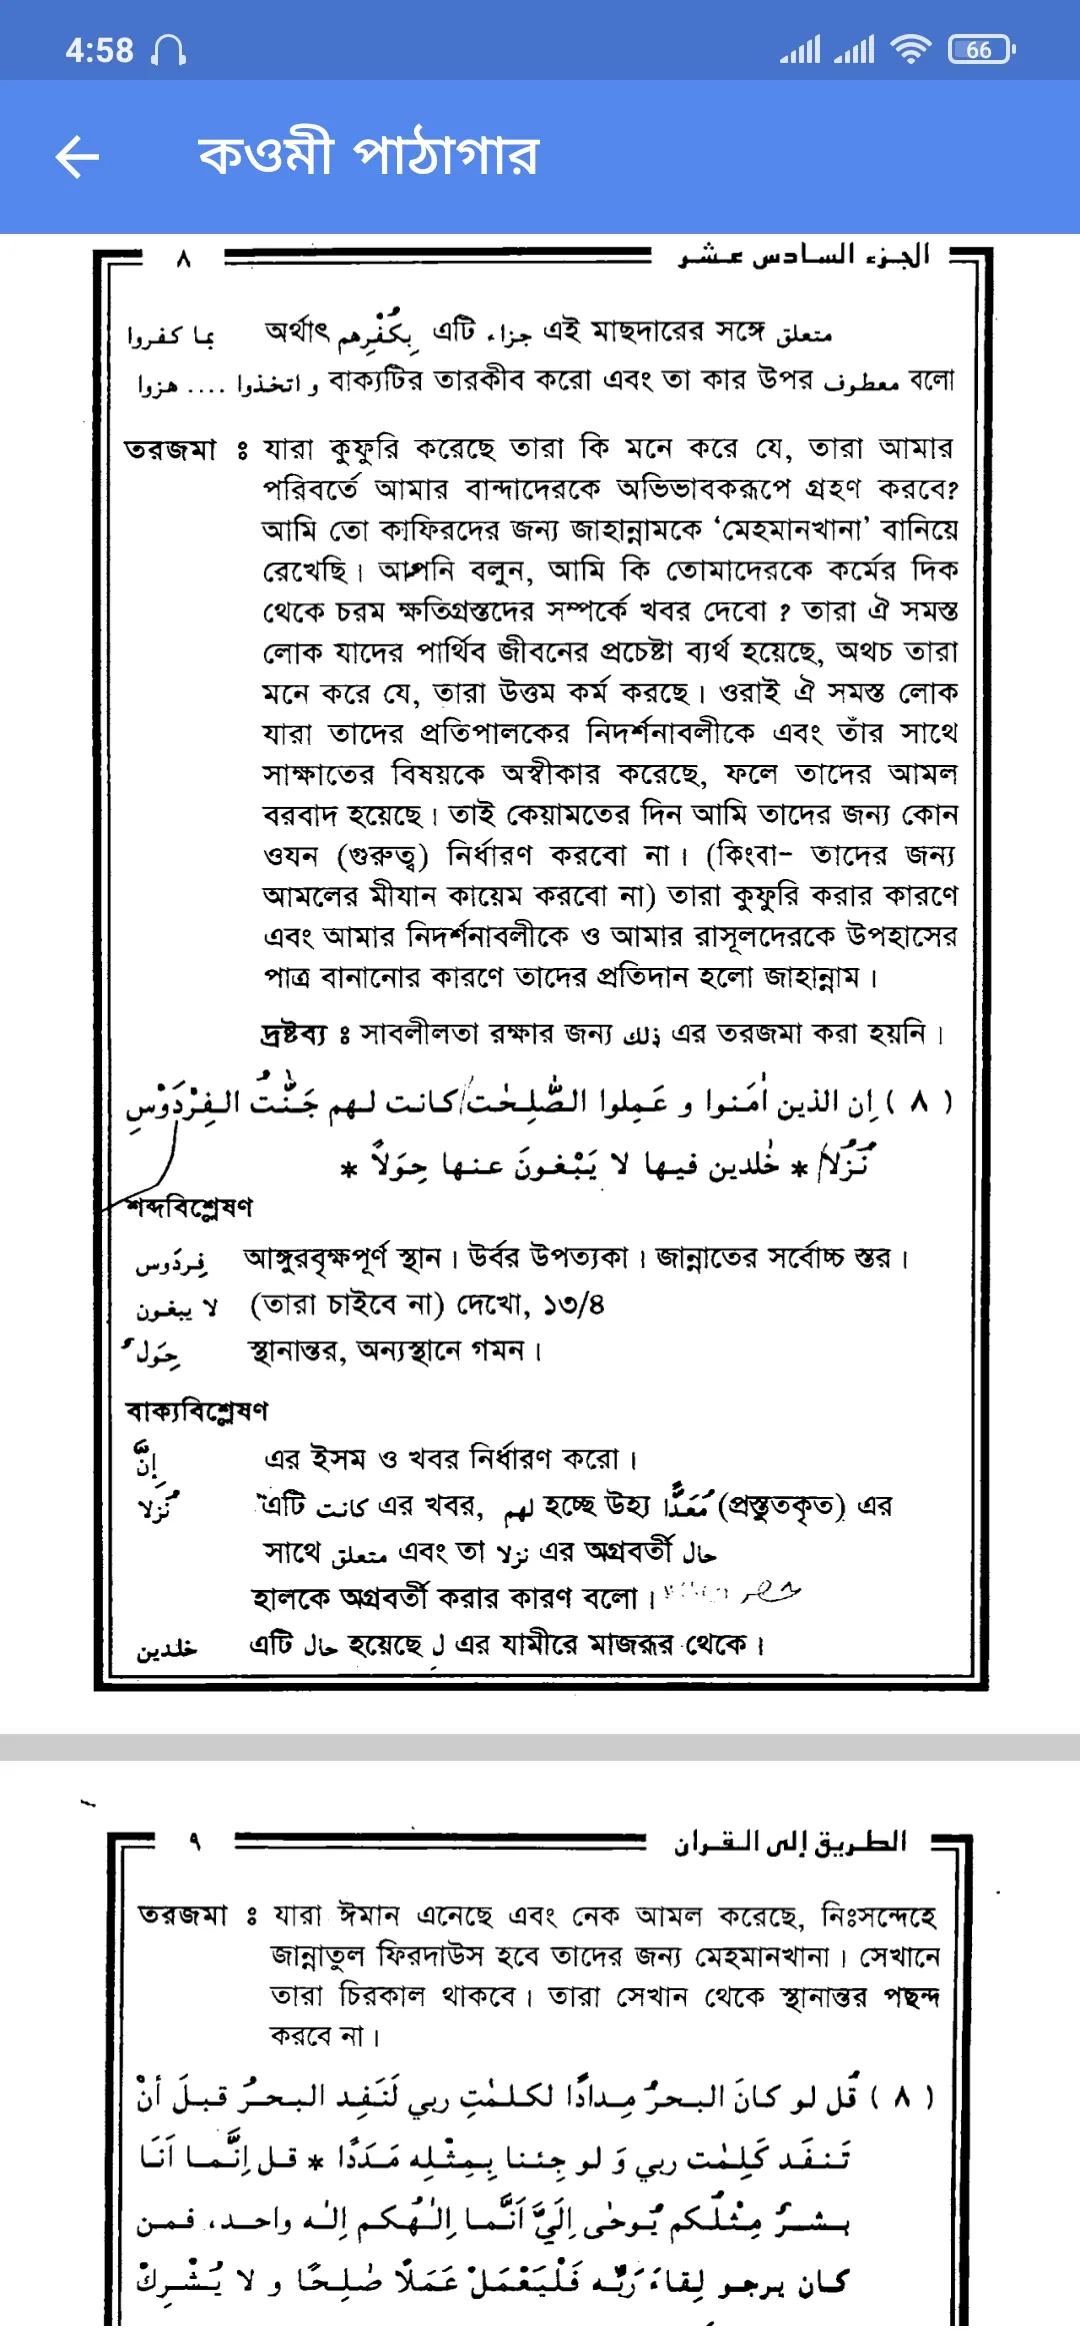 4:58
66
কওমী পাঠাগার
الجزء السادس عشر ٨
بما كفروا অর্থাৎ بِكُفْرِهم এটি جزاء এই মাছদারের সঙ্গে متعلق
و اتخذوا .... هزوا বাক্যটির তারকীব করো এবং তা কার উপর معطوف বলো
তরজমা ঃ যারা কুফুরি করেছে তারা কি মনে করে যে, তারা আমার
পরিবর্তে আমার বান্দাদেরকে অভিভাবকরূপে গ্রহণ করবে?
আমি তো কাফিরদের জন্য জাহান্নামকে ‘মেহমানখানা’ বানিয়ে
রেখেছি। আপনি বলুন, আমি কি তোমাদেরকে কর্মের দিক
থেকে চরম ক্ষতিগ্রস্তদের সম্পর্কে খবর দেবো ? তারা ঐ সমস্ত
লোক যাদের পার্থিব জীবনের প্রচেষ্টা ব্যর্থ হয়েছে, অথচ তারা
মনে করে যে, তারা উত্তম কর্ম করছে। ওরাই ঐ সমস্ত লোক
যারা তাদের প্রতিপালকের নিদর্শনাবলীকে এবং তাঁর সাথে
সাক্ষাতের বিষয়কে অস্বীকার করেছে, ফলে তাদের আমল
বরবাদ হয়েছে। তাই কেয়ামতের দিন আমি তাদের জন্য কোন
ওযন (গুরুত্ব) নির্ধারণ করবো না। (কিংবা- তাদের জন্য
আমলের মীযান কায়েম করবো না) তারা কুফুরি করার কারণে
এবং আমার নিদর্শনাবলীকে ও আমার রাসূলদেরকে উপহাসের
পাত্র বানানোর কারণে তাদের প্রতিদান হলো জাহান্নাম।
দ্রষ্টব্য ঃ সাবলীলতা রক্ষার জন্য ذلك এর তরজমা করা হয়নি।
( ٨ ) إن الذين اٰمَنوا و عَمِلوا الصّٰلِحٰت كانت لهم جَنّٰتُ الفِرْدَوْسِ
نُزُلًا * خٰلدين فيها لا يَبْغونَ عنها حِوَلًا *
শব্দবিশ্লেষণ
فِردَوس আঙ্গুরবৃক্ষপূর্ণ স্থান। উর্বর উপত্যকা। জান্নাতের সর্বোচ্চ স্তর।
لا يبغون (তারা চাইবে না) দেখো, ১৩/৪
حِوَلٌ স্থানান্তর, অন্যস্থানে গমন।
বাক্যবিশ্লেষণ
إنَّ এর ইসম ও খবর নির্ধারণ করো।
نُزلا এটি كانت এর খবর, لهم হচ্ছে উহ্য مُعَدًّا (প্রস্তুতকৃত) এর
সাথে متعلق এবং তা نزلا এর অগ্রবর্তী حال
হালকে অগ্রবর্তী করার কারণ বলো।
خلدين এটি حال হয়েছে ل এর যামীরে মাজরূর থেকে।
الطريق إلى القرآن ٩
তরজমা ঃ যারা ঈমান এনেছে এবং নেক আমল করেছে, নিঃসন্দেহে
জান্নাতুল ফিরদাউস হবে তাদের জন্য মেহমানখানা। সেখানে
তারা চিরকাল থাকবে। তারা সেখান থেকে স্থানান্তর পছন্দ
করবে না।
( ٨ ) قُل لو كانَ البحرُ مِدادًا لكلمٰتِ ربي لَنَفِد البحرُ قبلَ أنْ
تَنفَد كَلِمٰت ربي وَ لو جِئنا بِمِثْلِه مَدَدًا * قل إنَّما اَنَا
بشرٌ مِثْلُكم يُوحٰى إلَيَّ اَنَّما اِلٰهُكم إلٰه واحد، فمن
كان يرجو لِقاءَ رَبِّه فَلْيَعْمَلْ عَمَلًا صٰلِحًا و لا يُشْرِكْ